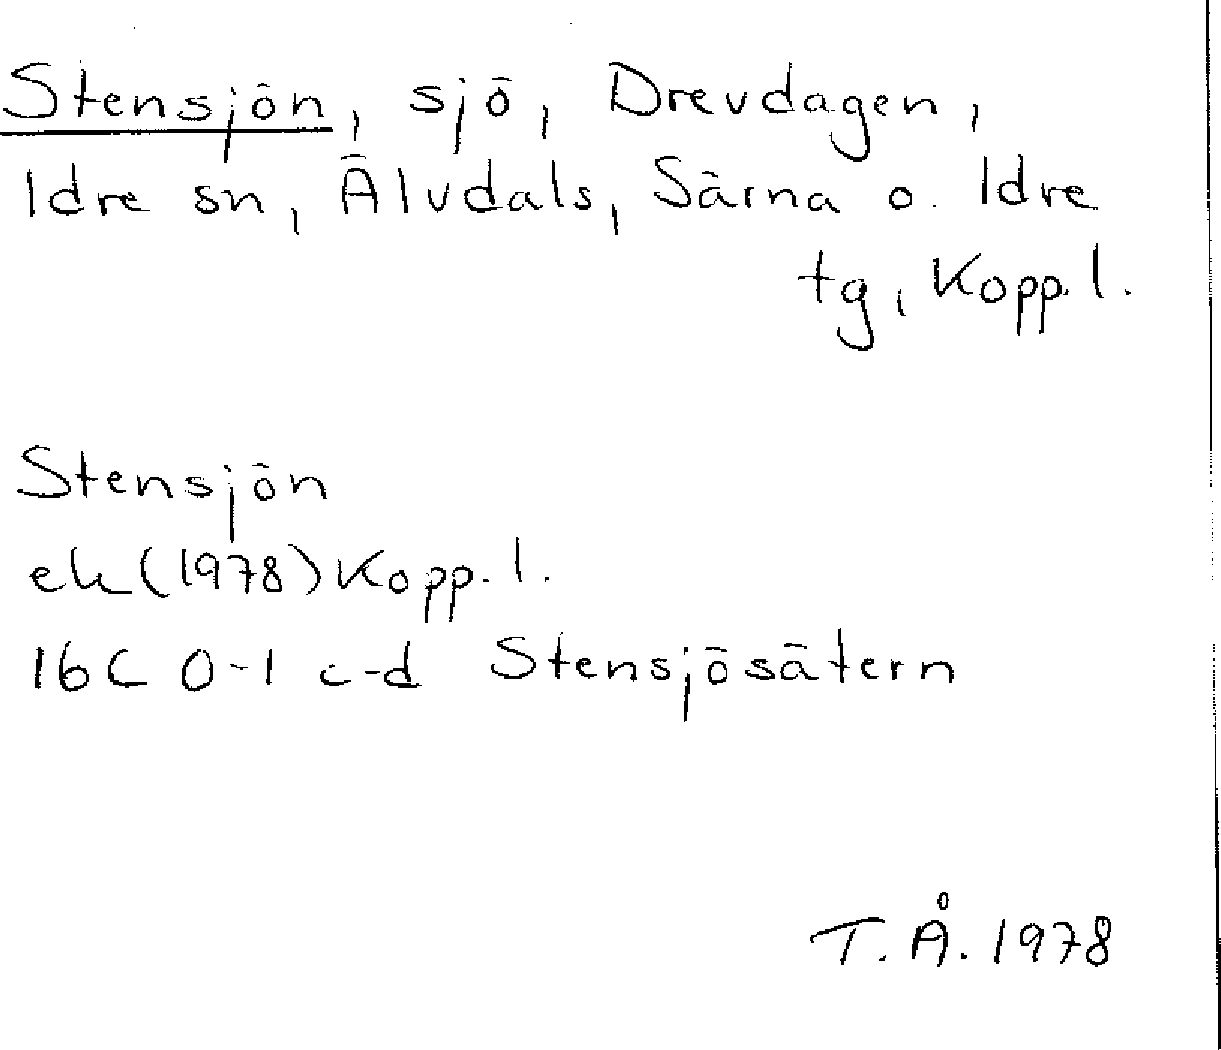 Stensjön, sjö, Drevdagen,
Idre sn, Älvdals, Särna o. Idre
tg, Kopp. l.
Stensjön
ek (1978) Kopp. l.
16C 0-1 c-d Stensjösätern
T.Å. 1978